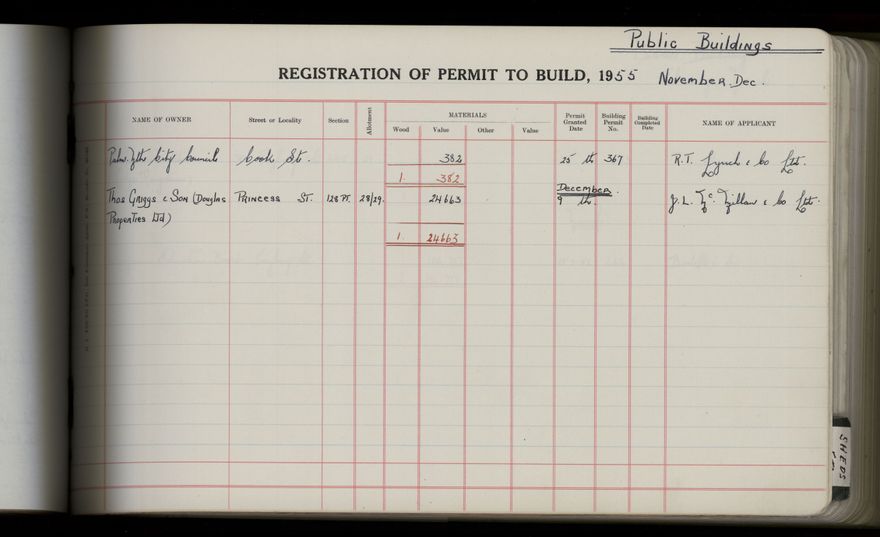 Public Buildings
REGISTRATION OF PERMIT TO BUILD, 1955 November, Dec.
NAME OF OWNER Street or Locality Section Allotment MATERIALS Permit Granted Date Building Permit No. Building Completed Date NAME OF APPLICANT
Wood Value Other Value
Palm. Nth City Council Cook St. 382 25 th 367 R.T. Lynch & Co Ltd.
1. 382
December.
Thos Griggs & Son (Douglas PRINCESS ST. 128 PT. 28/29. 24663 9 th. J.L. & Co Ltd.
Properties Ltd)
1. 24663
SHEDS